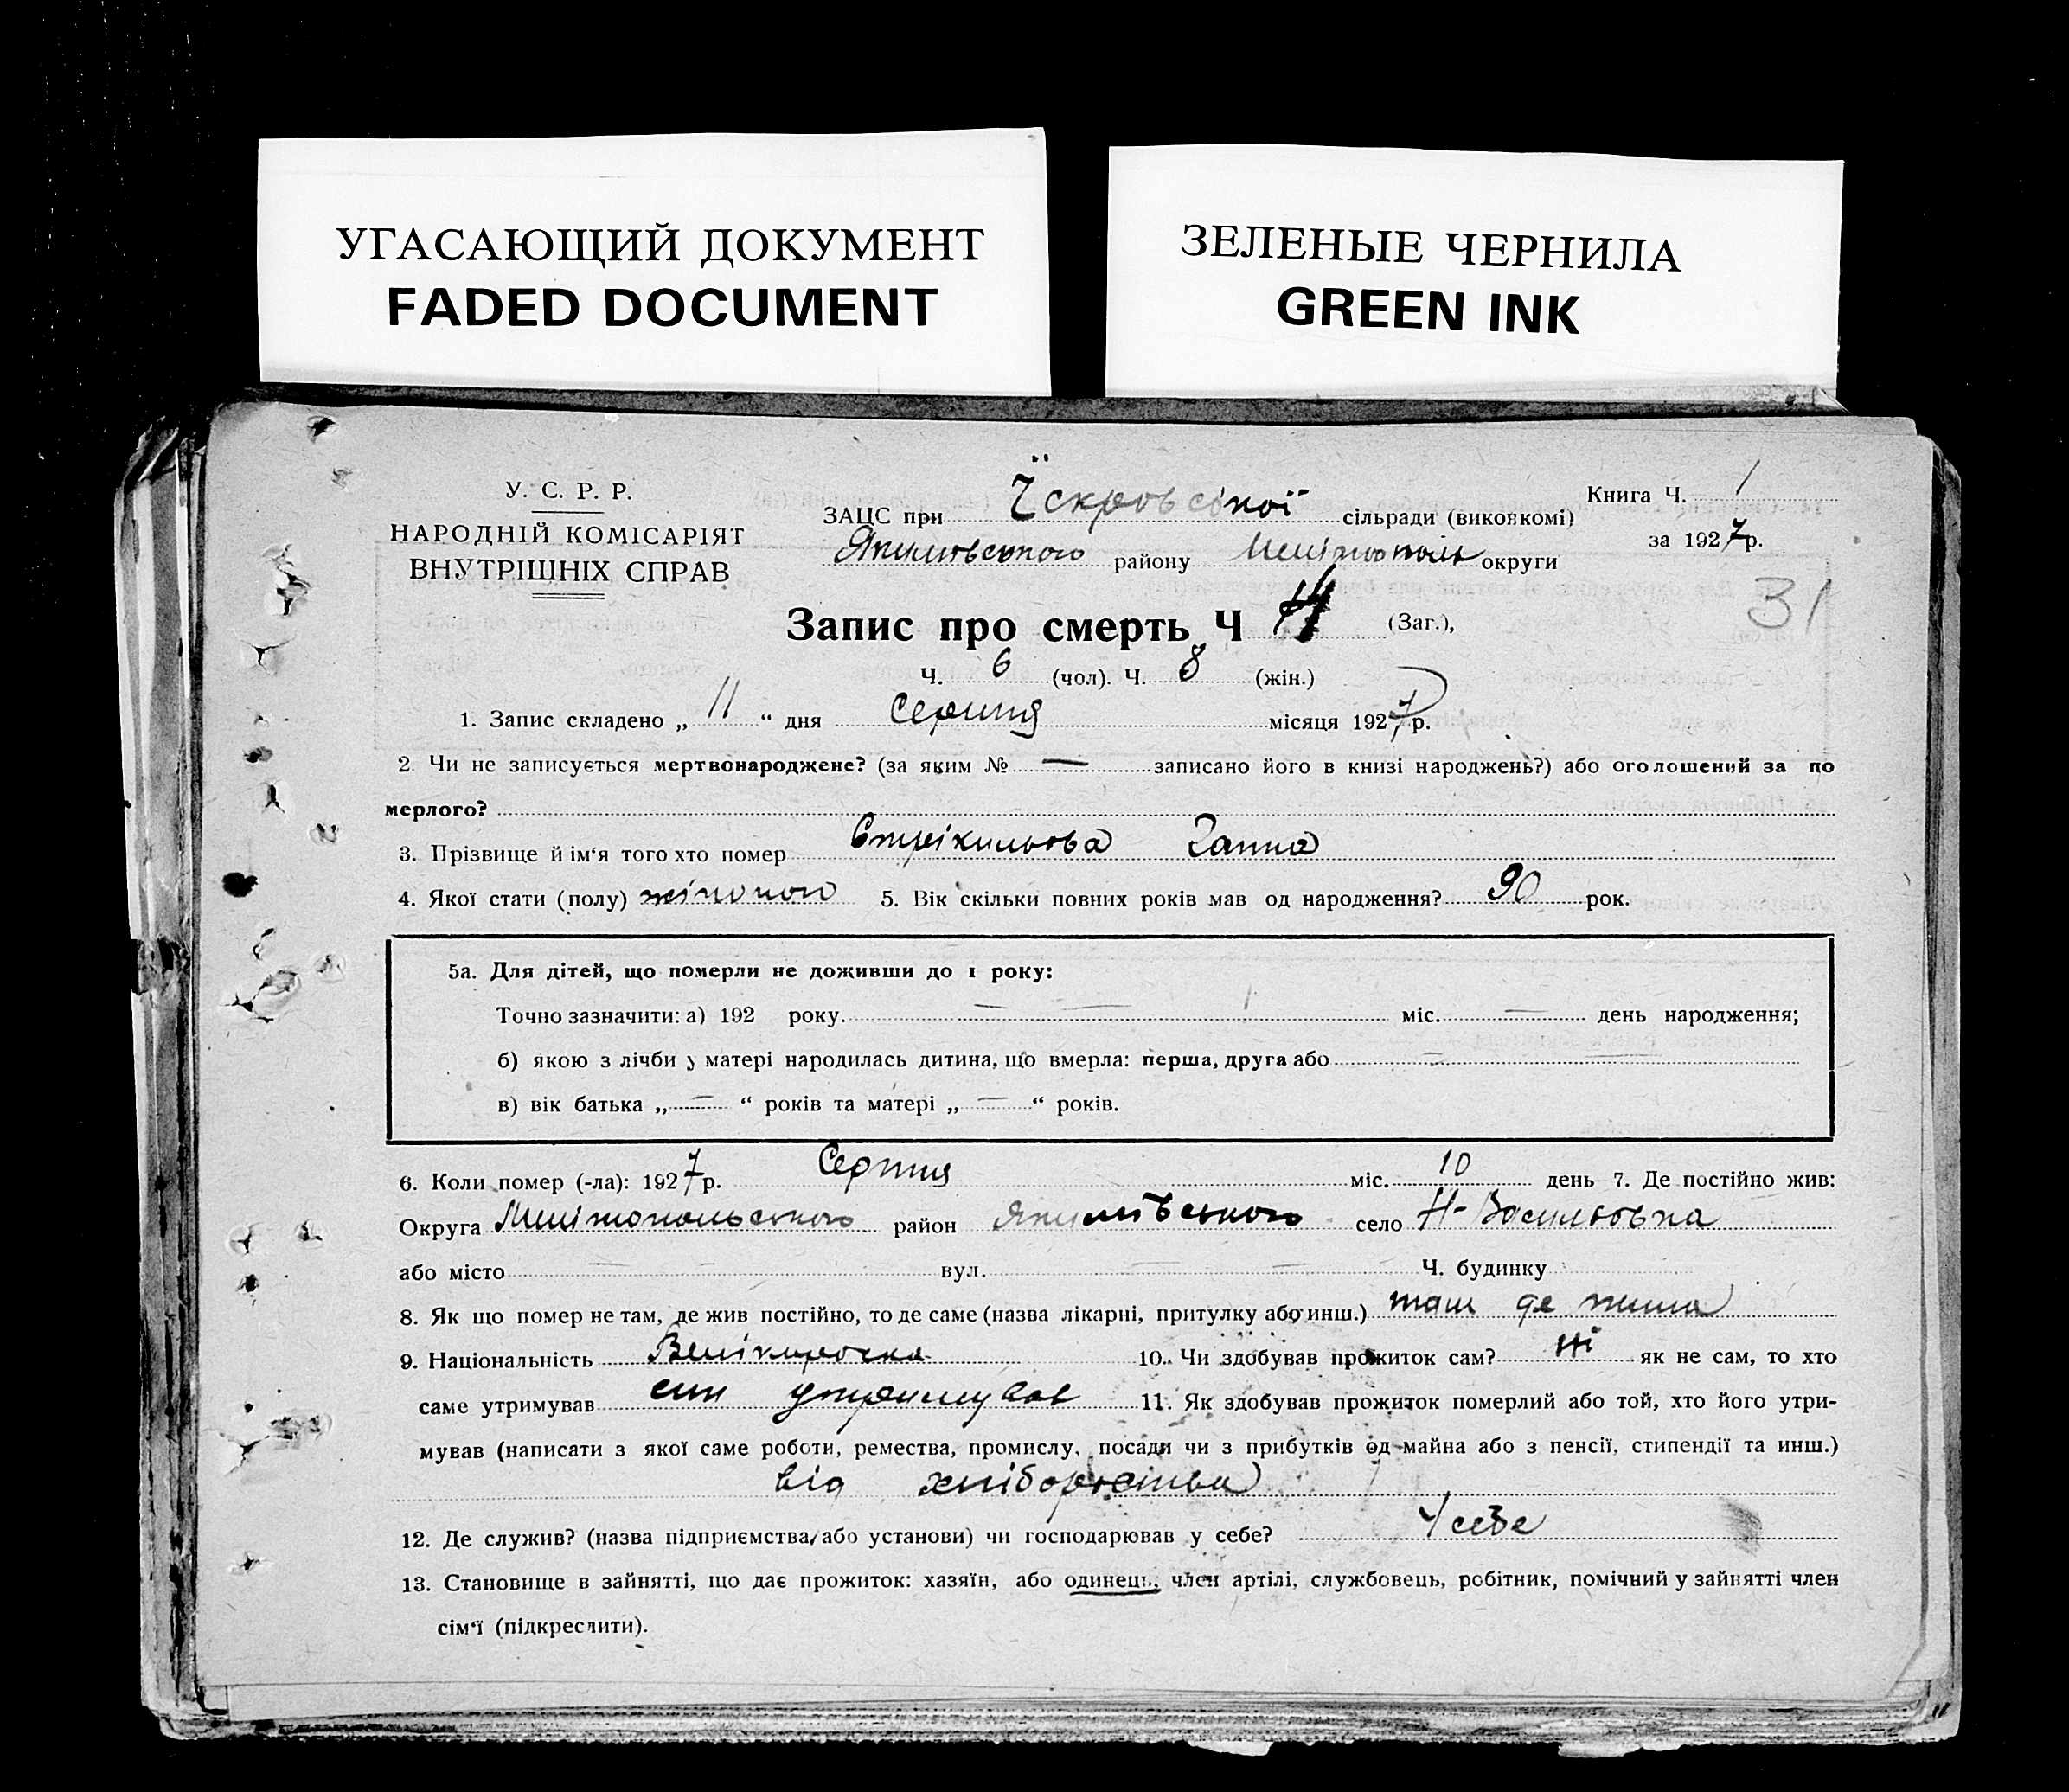 УГАСАЮЩИЙ ДОКУМЕНТ
FADED DOCUMENT
ЗЕЛЕНЫЕ ЧЕРНИЛА
GREEN INK
У. С. Р. Р.
НАРОДНІЙ КОМІСАРІЯТ
ВНУТРІШНІХ СПРАВ
ЗАЦС при Їскровської сільради (виконкомі)
Якимівського району Мелітопол округи
Книга Ч. 1
за 1927 р.
31
Запис про смерть Ч (Заг.),
Ч. 6 (чол). Ч. 8 (жін.)
1. Запис складено „ 11 “ дня Серпня місяця 1927 р.
2. Чи не записується мертвонароджене? (за яким № — записано його в книзі народжень?) або оголошений за по
мерлого?
3. Прізвище й ім‘я того хто помер Стрікильова Ганна
4. Якої стати (полу) жіночого 5. Вік скільки повних років мав од народження? 90 рок.
5а. Для дітей, що померли не доживши до 1 року:
Точно зазначити: а) 192 року. — — міс. — день народження;
б) якою з лічби у матері народилась дитина, що вмерла: перша, друга або —
в) вік батька „ — “ років та матері „ — “ років.
6. Коли помер (-ла): 1927 р. Серпня міс. 10 день 7. Де постійно жив:
Округа Мелітопольського район Якимівського село Н-Васильовка
або місто — — вул. — — Ч. будинку
8. Як що помер не там, де жив постійно, то де саме (назва лікарні, притулку або инш.) там де жила
9. Національність Велікороска 10. Чи здобував прожиток сам? ні як не сам, то хто
саме утримував син утримував 11. Як здобував прожиток померлий або той, хто його утри-
мував (написати з якої саме роботи, ремества, промислу, посади чи з прибутків од майна або з пенсії, стипендії та инш.)
від хліборобства
12. Де служив? (назва підприємства, або установи) чи господарював у себе? У себе
13. Становище в зайнятті, що дає прожиток: хазяїн, або одинець, член артілі, службовець, робітник, помічний у зайнятті член
сім‘ї (підкреслити).